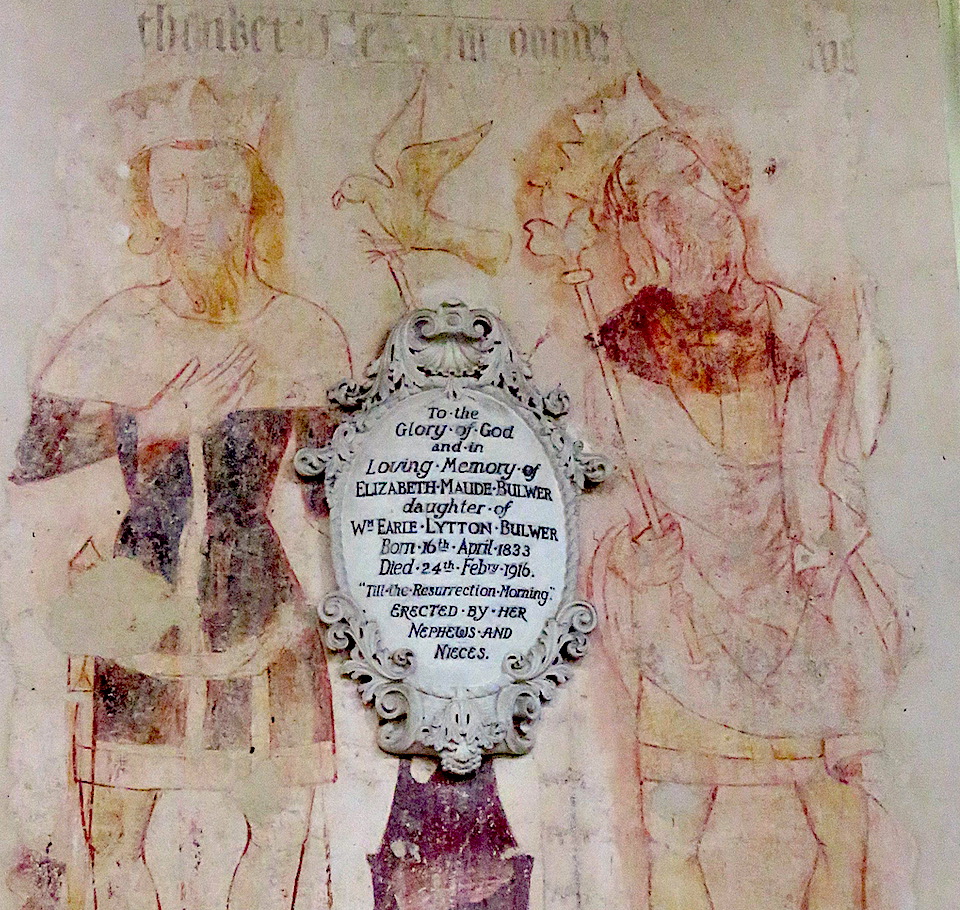 To·the
Glory·of·God
and·in
Loving·Memory·of
ELIZABETH·MAUDE·BULWER
daughter·of
Wᴹ EARLE·LYTTON·BULWER
Born·16th·April·1833
Died·24th·Febry·1916.
"Till·the·Resurrection·Morning."
ERECTED·BY·HER
NEPHEWS·AND
NIECES.